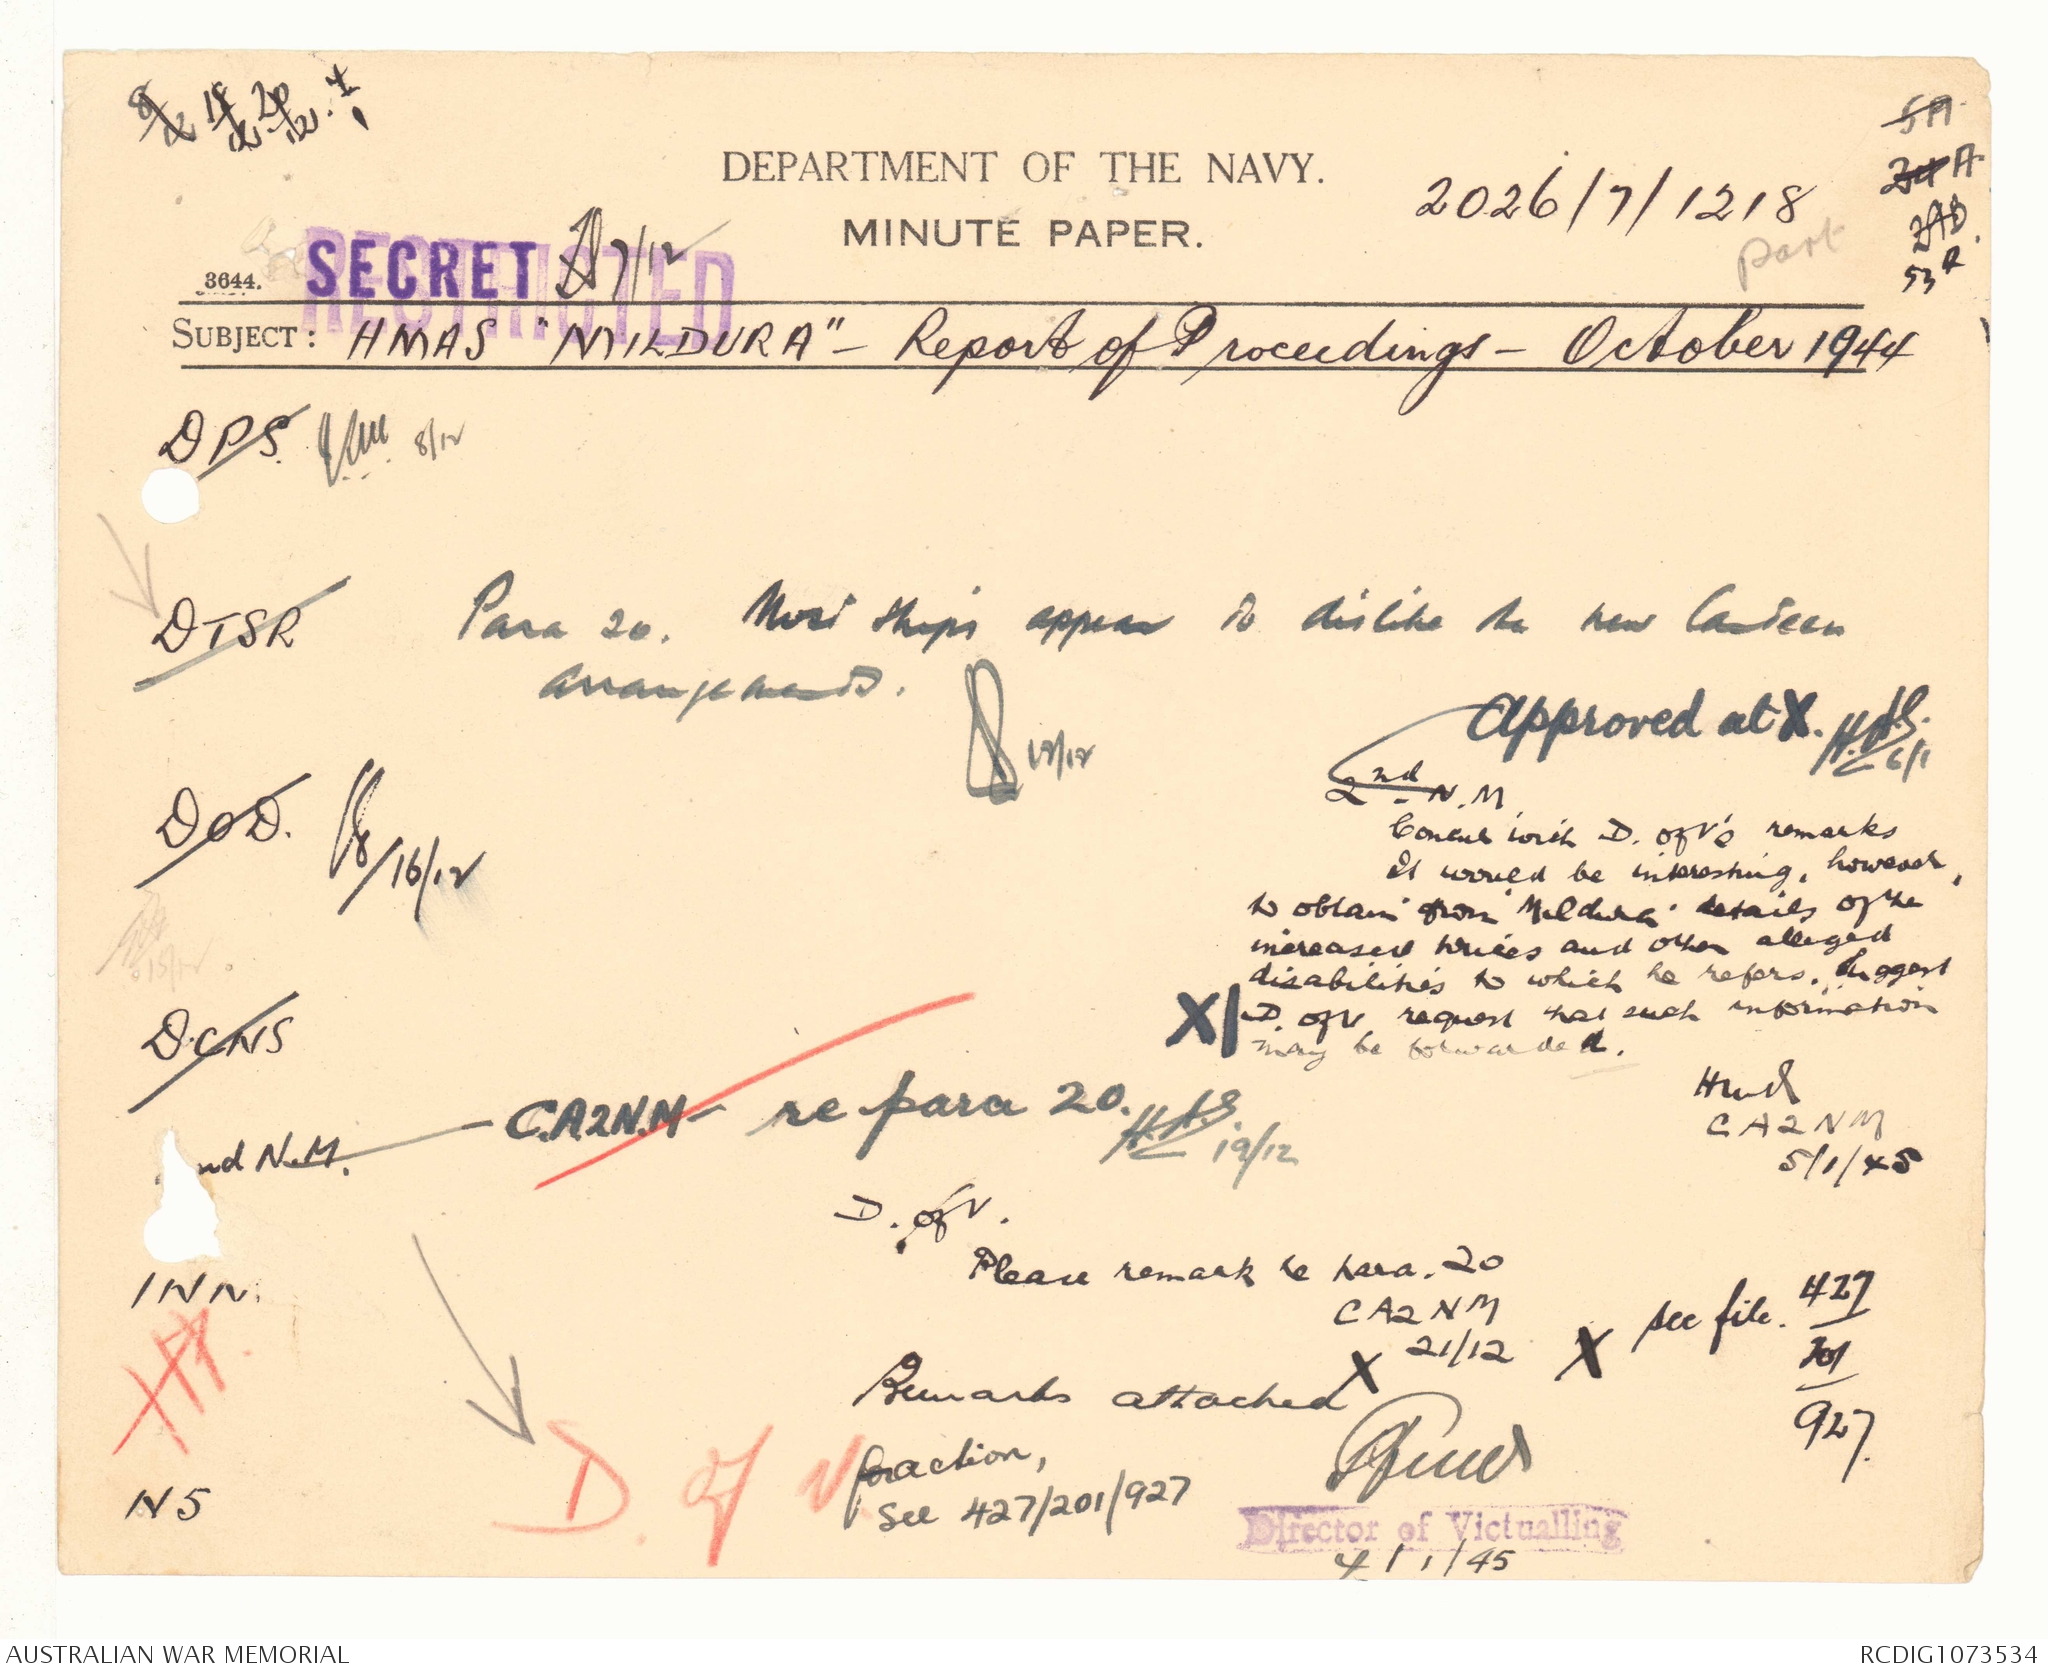 8/12 15/12 20/12
DEPARTMENT OF THE NAVY.
MINUTE PAPER.
2026/7/1218
part
5A
24A
53A
3644.
SECRET
RESTRICTED
7/12
SUBJECT: HMAS "MILDURA" - Report of Proceedings - October 1944
DPS. 8/12
DTSR
Para 20. Most ships appear to dislike the new Canteen
arrangements.
12/12
Approved at X. H.A.S.
6/1
DOD.
16/12
2nd N.M
Concur with D. of V's remarks
It would be interesting, however,
to obtain from 'Mildura' details of the
increased prices and other alleged
disabilities to which he refers. Suggest
X| D. of V. request that such information
may be forwarded.
CA2NM
5/1/45
18/12
D.CNS
2nd N.M. - C.A.2N.M - re para 20. H.A.S.
19/12
D. of V.
Please remark re para. 20
CA2NM
21/12
1NN.
X see file. 427
201
927
Remarks attached X
for action,
See 427/201/927
D. of V.
N5
Director of Victualling
4/1/45
AUSTRALIAN WAR MEMORIAL
RCDIG1073534